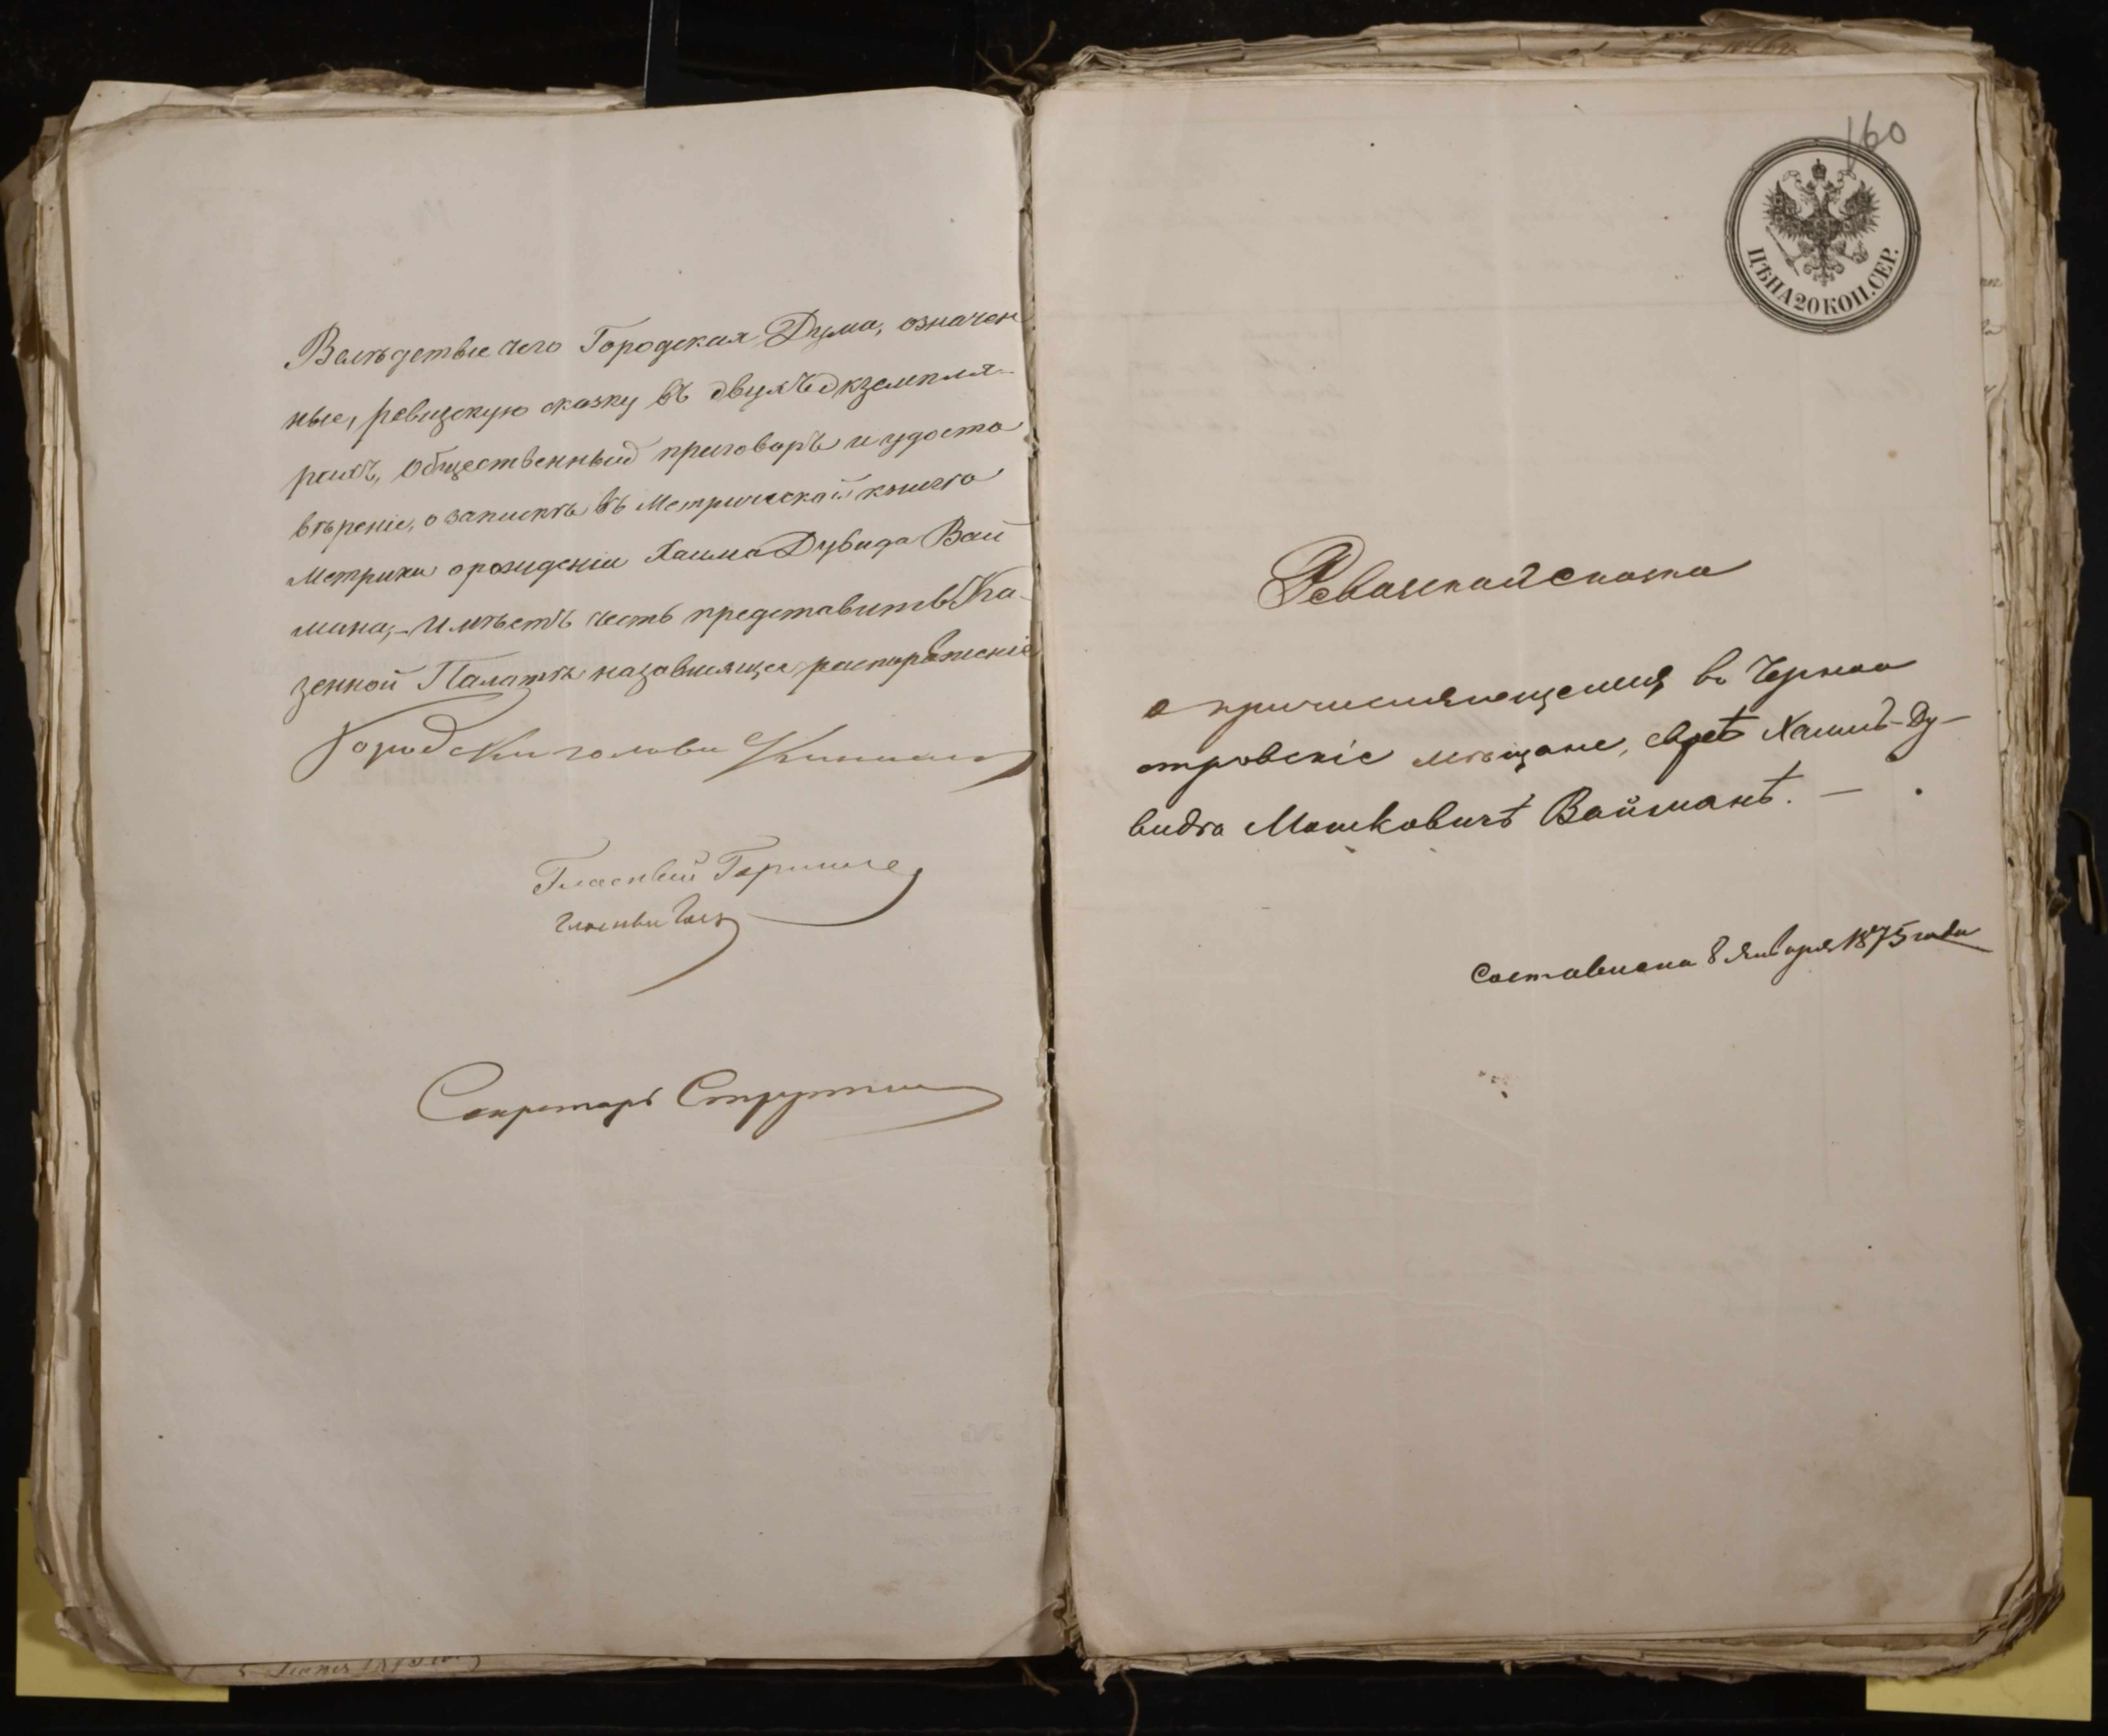 Вслѣдствіе чего Городская Дума, означен
ные, ревизскую сказку въ двухъ экземпля-
рахъ, общественный приговоръ и удосто
вѣреніе, о запискѣ въ Метрической книгѣ
Метрики о рожденіи Хаима Дувида Вай
мана,- имѣетъ честь представить Ка-
зенной Палатѣ на зависящее распоряженіе
Городской голова
Гласный
Гласный
Секретарь
160
ЦѢНА 20 КОП. СЕР.
Ревизская сказка
о причисляющемся въ Черноо
стровскіе мѣщане, еврей Хаимъ-Ду-
видъ Мошковичъ Вайманъ. —
Составлена 8 Января 1875 года